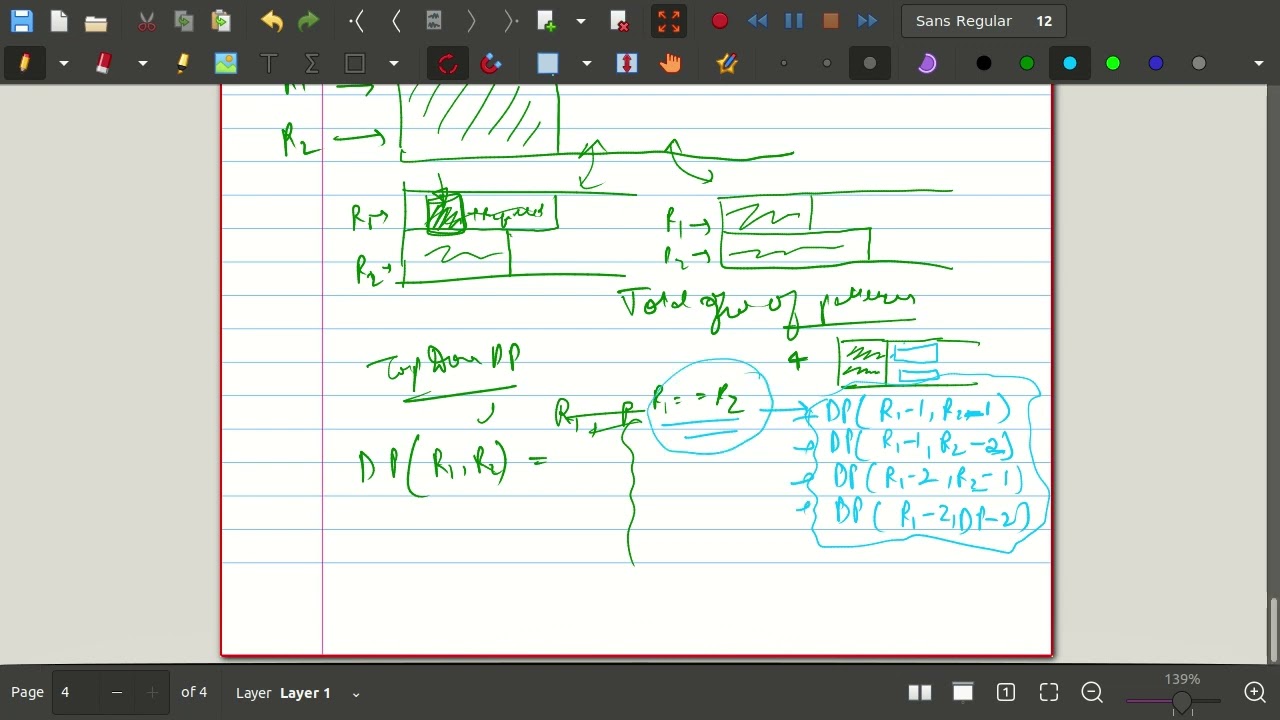 Sans Regular 12
R1 →
R2 →
R1→
R2→
R1→
R2→
Total of patterns
4
Top Down DP
R1 R
R1 = = R2
DP( R1-1, R2-1)
DP( R1-1, R2-2)
DP( R1, R2) =
DP( R1-2, R2-1)
DP( R1-2, DP-2)
Page 4 of 4 Layer Layer 1
139%